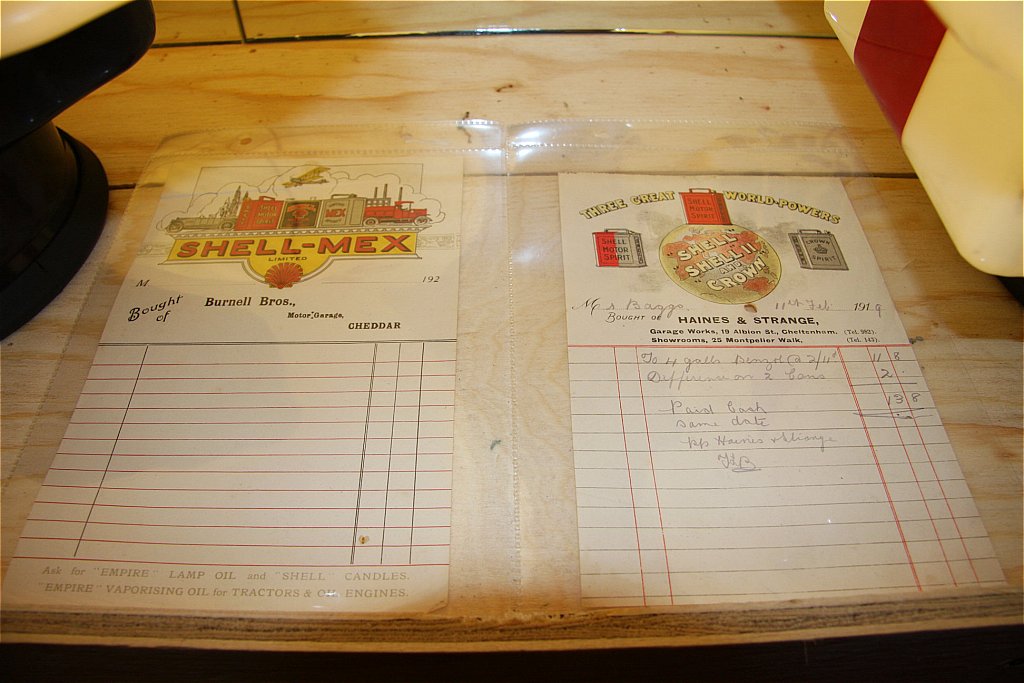 SHELL MOTOR SPIRIT
MEX
SHELL-MEX
LIMITED
M 192
Bought of
Burnell Bros.,
Motor Garage,
CHEDDAR
Ask for "EMPIRE" LAMP OIL and "SHELL" CANDLES.
"EMPIRE" VAPORISING OIL for TRACTORS & OIL ENGINES.
THREE GREAT WORLD-POWERS
SHELL MOTOR SPIRIT
SHELL MOTOR SPIRIT
CROWN SPIRIT
"SHELL"
"SHELL II"
AND
"CROWN"
Mrs Baggs 11th Feb 1919
BOUGHT OF HAINES & STRANGE,
Garage Works, 19 Albion St., Cheltenham. (Tel. 982).
Showrooms, 25 Montpelier Walk. (Tel. 143).
To 4 galls Benzol @ 2/11d 11 8
Difference on 2 Cans 2 .
13 8
Paid Cash
same date
pp Haines & Strange